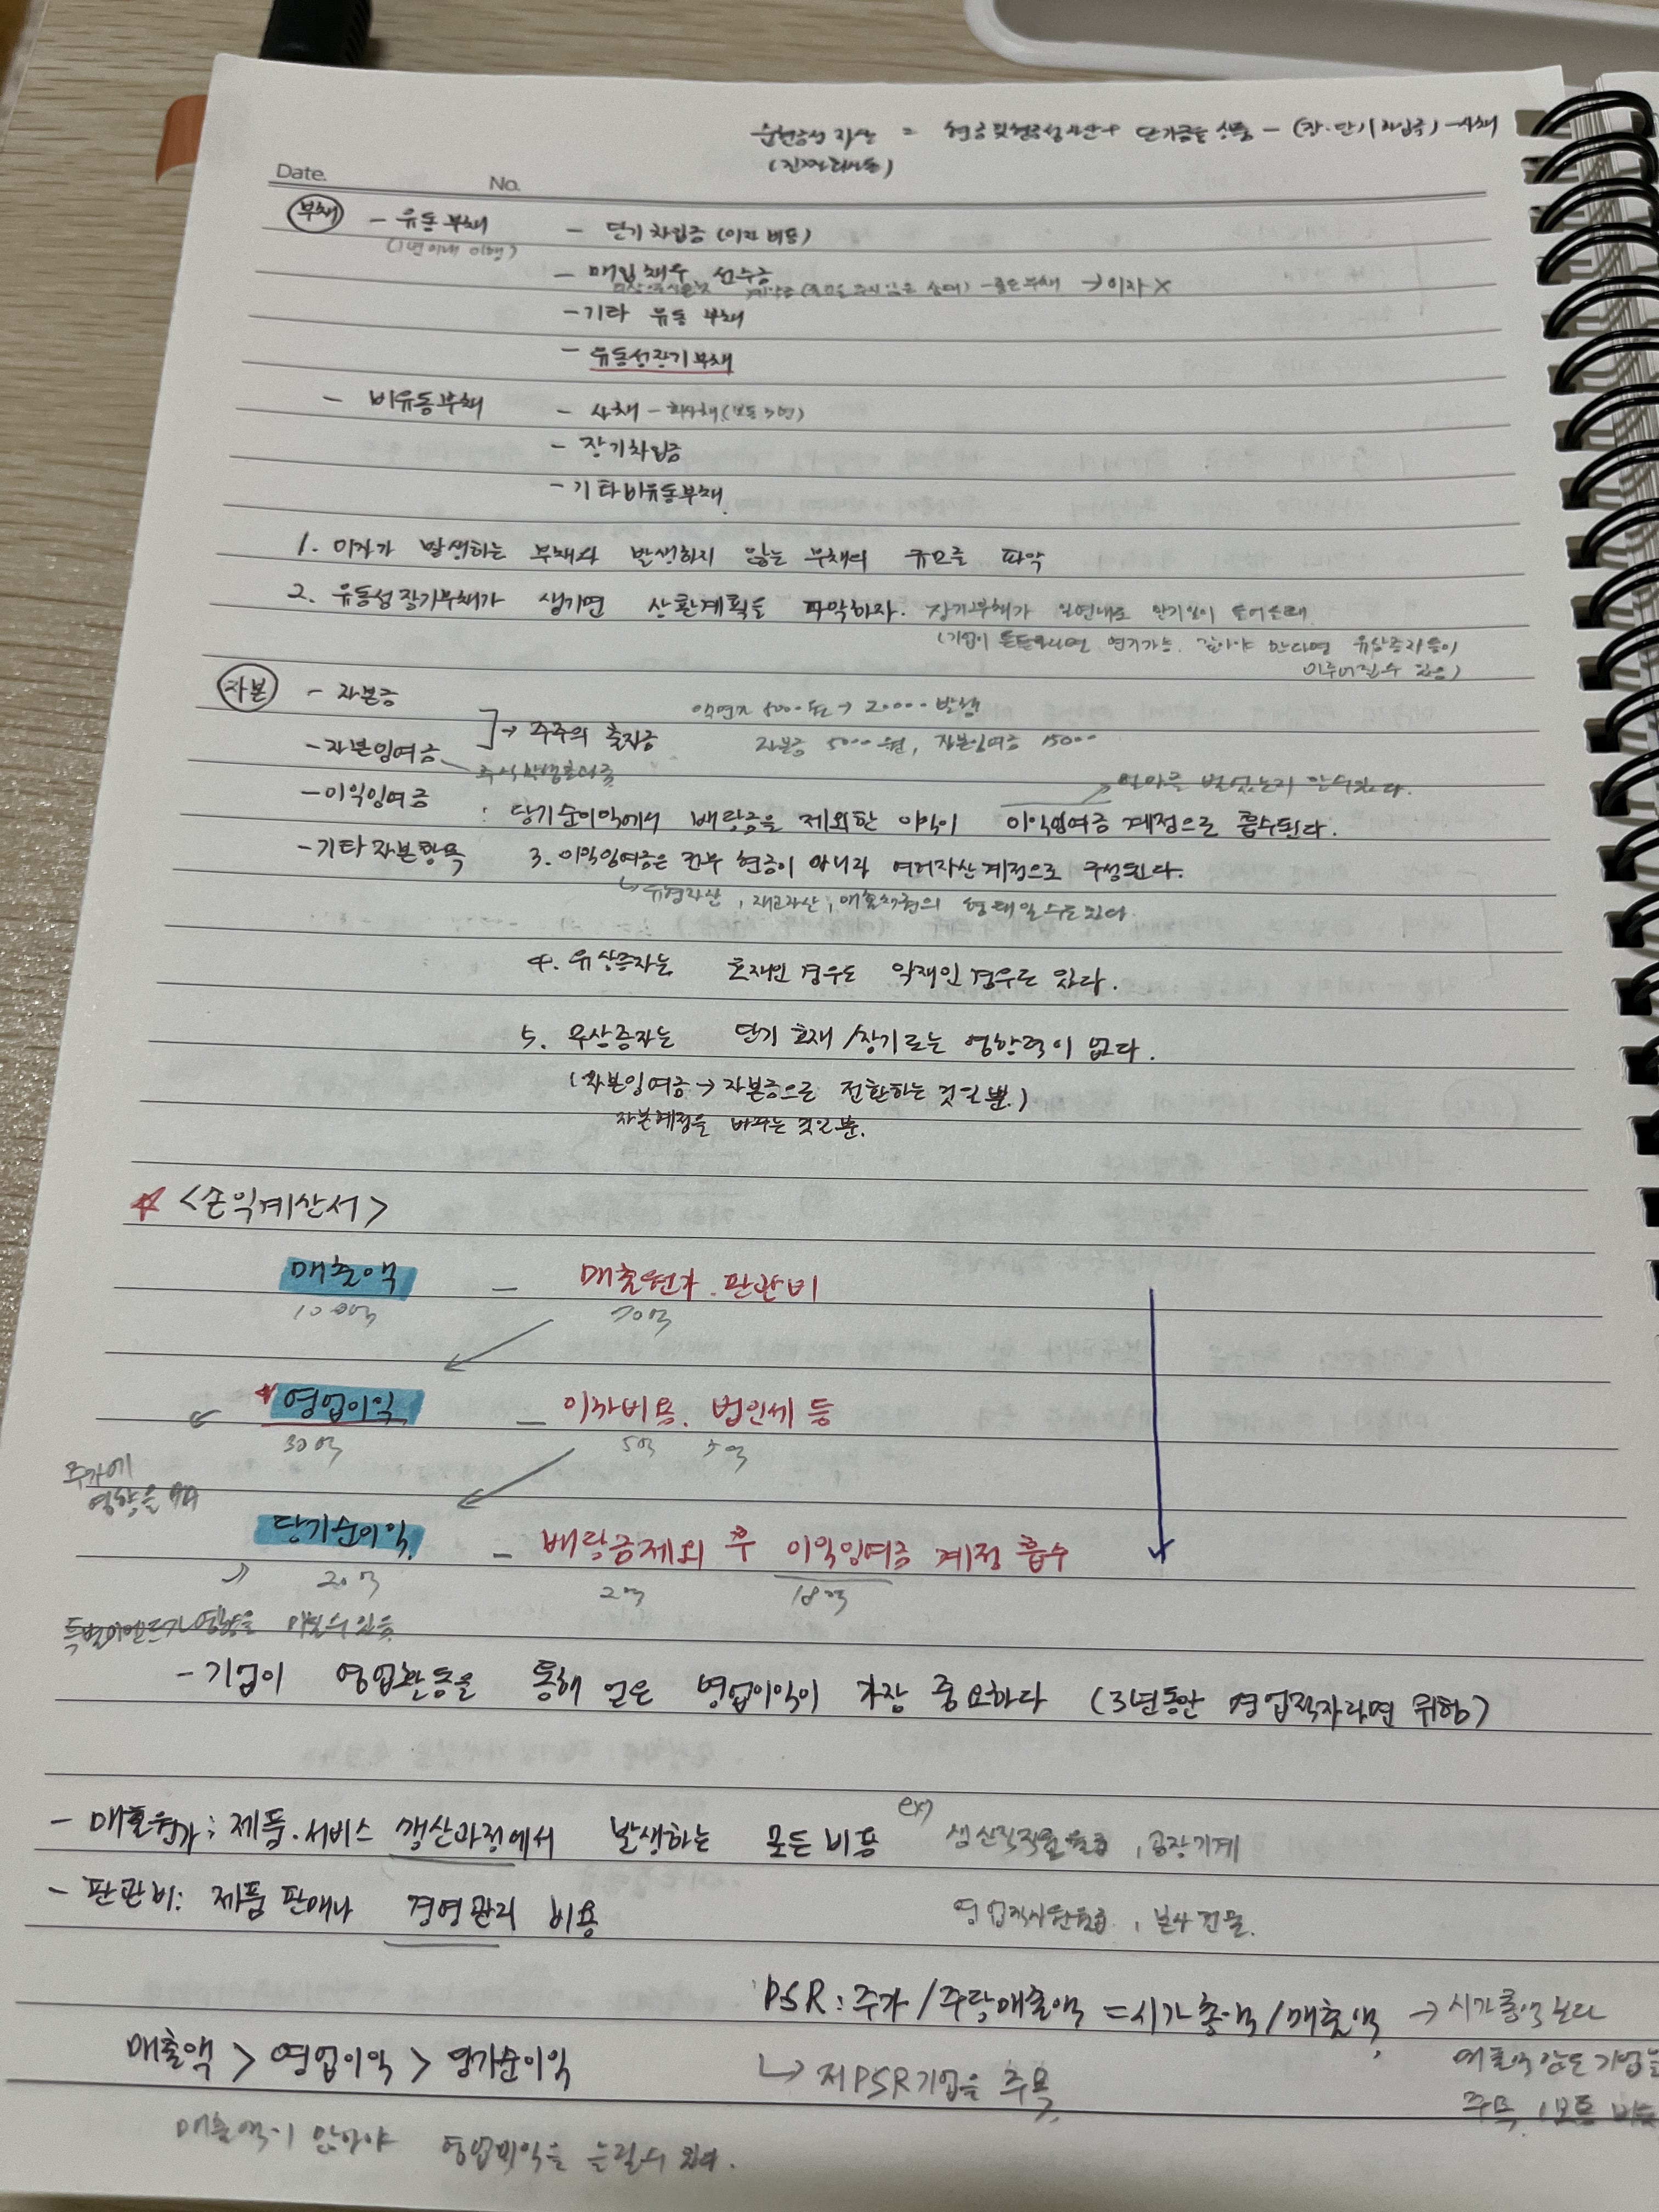 순현금성 자산 = 현금및현금성자산 + 단기금융상품 - (장·단기차입금) - 사채
Date. No.
부채 - 유동부채 - 단기차입금 (이자 비용)
(1년이내 이행)
- 매입채무, 선수금
계약금 - 좋은부채 → 이자 X
- 기타 유동 부채
- 유동성장기부채
- 비유동부채 - 사채 - 회사채 (보통 3년)
- 장기차입금
- 기타비유동부채.
1. 이자가 발생하는 부채와 발생하지 않는 부채의 규모를 파악
2. 유동성장기부채가 생기면 상환계획을 파악하자. 장기부채가 일년내로 만기일이 들어올때
(기업이 튼튼하다면 연장가능. 갚아야 한다면 유상증자등이
이루어질수 있음)
자본 - 자본금 액면가 5000원 → 20000 발행
- 자본잉여금 → 주주의 출자금 자본금 5000원, 자본잉여금 15000
주식발행초과금
- 이익잉여금 얼마를 벌었는지 알수있다.
: 당기순이익에서 배당금을 제외한 이익이 이익잉여금 계정으로 흡수된다.
- 기타자본항목 3. 이익잉여금은 전부 현금이 아니라 여러자산계정으로 구성된다.
유형자산, 재고자산, 매출채권의 형태일수도있다.
4. 유상증자는 호재인 경우도 악재인 경우도 있다.
5. 무상증자는 단기 호재 / 장기로는 영향력이 없다.
(자본잉여금 → 자본금으로 전환하는 것일 뿐.)
자본계정을 바꾸는 것일뿐.
☆ <손익계산서>
매출액 - 매출원가. 판관비
100억 70억
*영업이익 - 이자비용. 법인세 등
30억 5억 5억
주가에
영향을
당기순이익. - 배당금제외 후 이익잉여금 계정 흡수
20억 2억 18억
영향을 미칠수 있음
- 기업이 영업활동을 통해 얻은 영업이익이 가장 중요하다 (3년동안 영업적자라면 위험)
- 매출원가 : 제품. 서비스 생산과정에서 발생하는 모든 비용 ex) 생산직직원월급, 공장기계
- 판관비 : 제품 판매나 경영관리 비용 영업직사원월급, 본사 건물.
PSR : 주가 / 주당매출액 = 시가총액 / 매출액, → 시가총액보다
매출액 > 영업이익 > 당기순이익 ↳ 저PSR기업을 주목, 매출액 기업을
주목.
매출액이 많아야 영업이익을 늘릴수 있다.